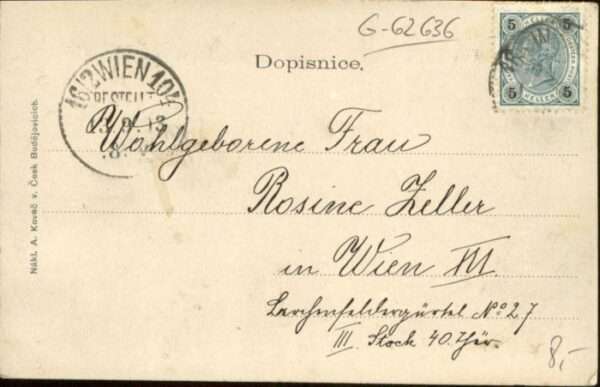 G-62636
Dopisnice.
5 5
HELLER HELLER
5 5
16/2 WIEN 10
BESTELLT
Wohlgeborene Frau
Rosine Zeller
in Wien VII.
Lerchenfeldergürtel No 27
III. Stock 40. Thür.
8,-
Nákl. A. Kovář v. Česk Budějovicích.